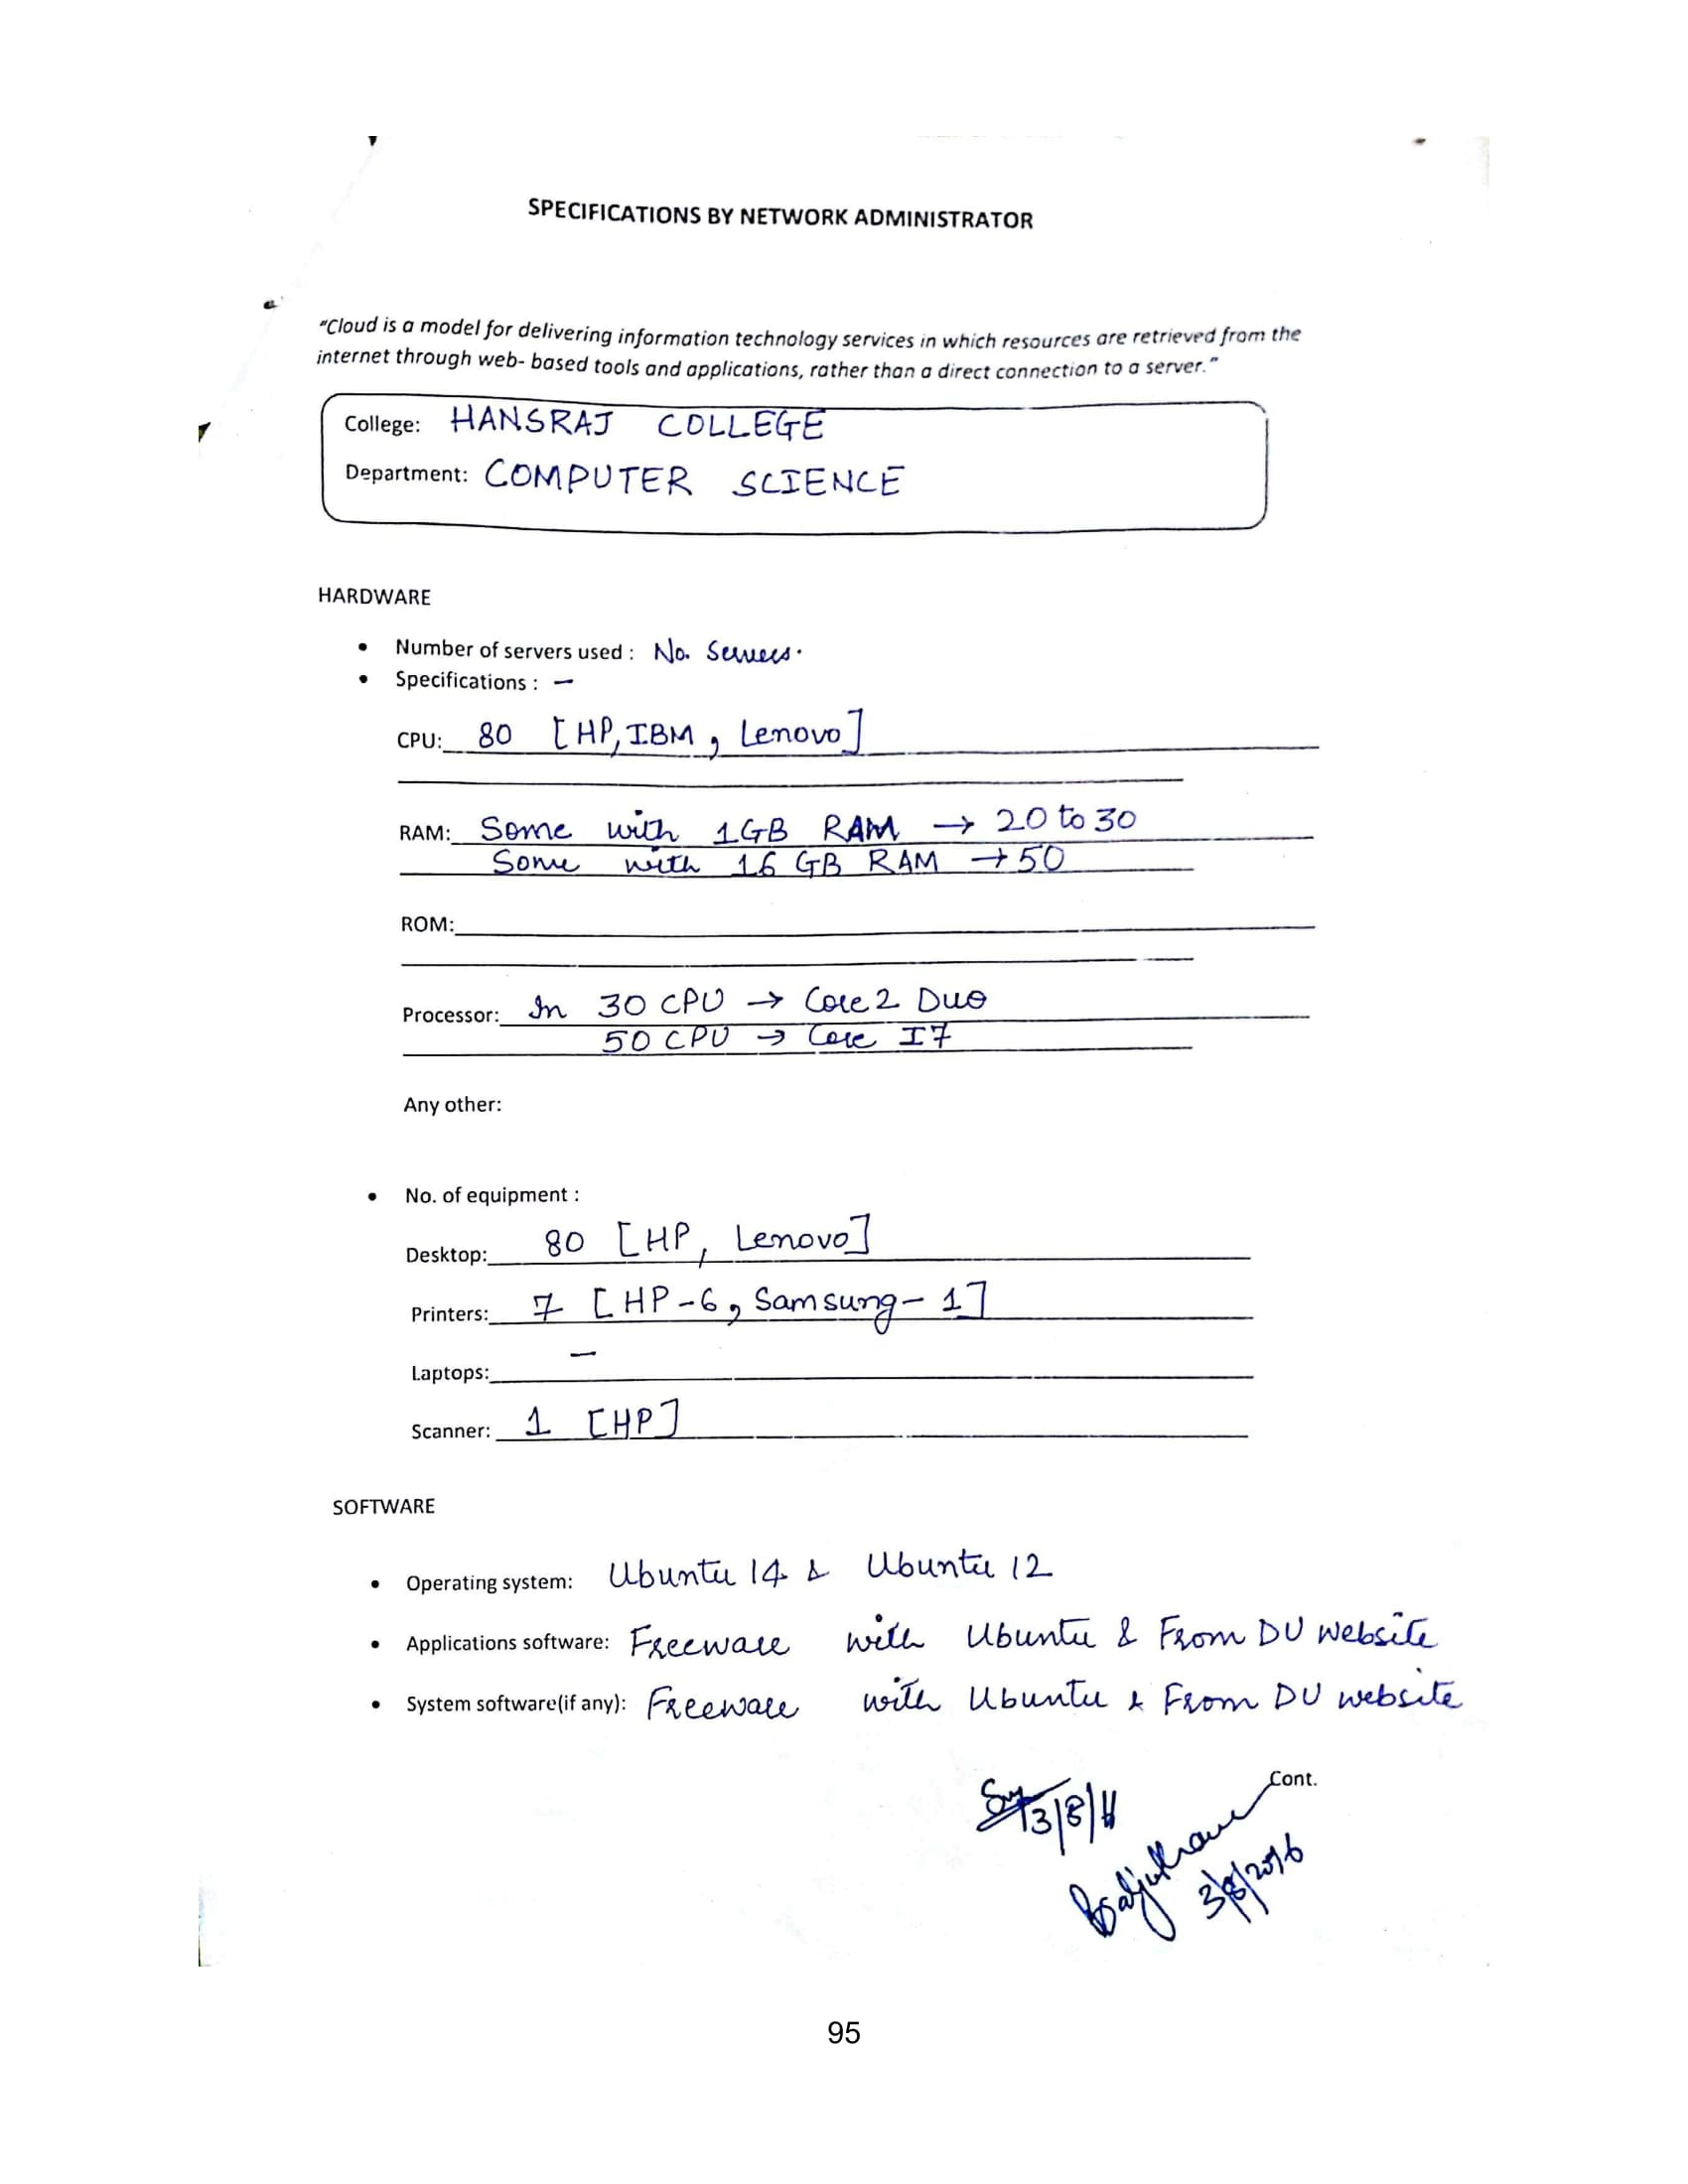 SPECIFICATIONS BY NETWORK ADMINISTRATOR
"Cloud is a model for delivering information technology services in which resources are retrieved from the
internet through web- based tools and applications, rather than a direct connection to a server."
College: HANSRAJ COLLEGE
Department: COMPUTER SCIENCE
HARDWARE
• Number of servers used : No. Servers.
• Specifications : –
CPU: 80 [HP, IBM, Lenovo]
RAM: Some with 1GB RAM → 20 to 30
Some with 16 GB RAM → 50
ROM:
Processor: In 30 CPU → Core 2 Duo
50 CPU → Core I7
Any other:
• No. of equipment :
Desktop: 80 [HP, Lenovo]
Printers: 7 [HP-6, Samsung-1]
Laptops: –
Scanner: 1 [HP]
SOFTWARE
• Operating system: Ubuntu 14 & Ubuntu 12
• Applications software: Freeware with Ubuntu & From DU website
• System software(if any): Freeware with Ubuntu & From DU website
Cont.
3/8/2016
95